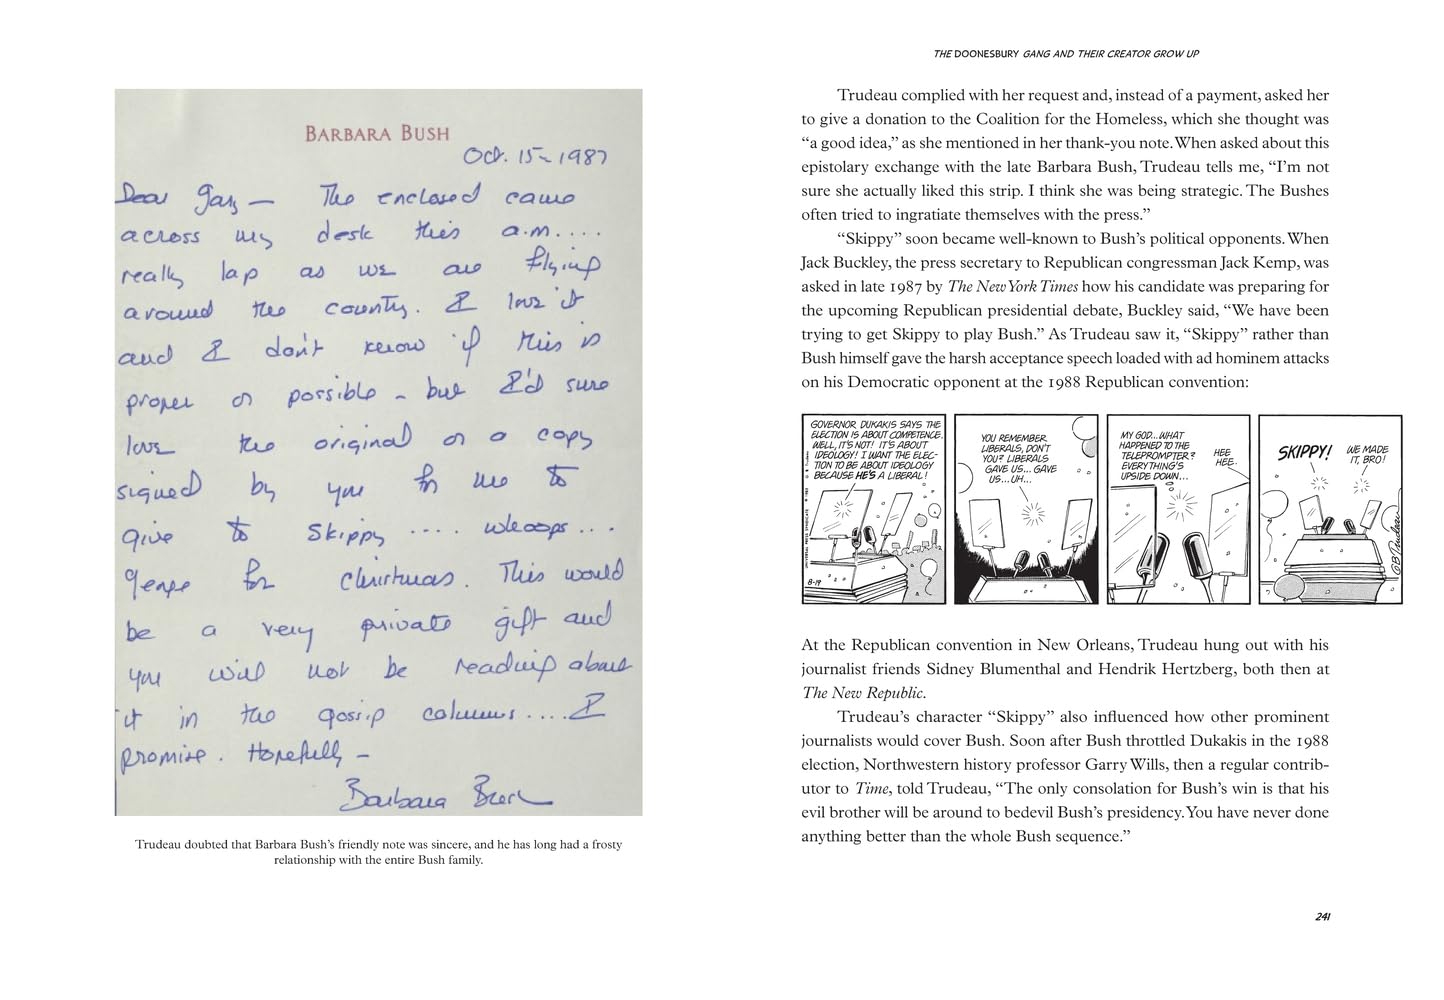 BARBARA BUSH
Oct. 15 - 1987
Dear Gary — The enclosed came
across my desk this a.m....
really lap as we are flying
around the country. I love it
and I don't know if this is
proper or possible - but I'd sure
love the original or a copy
signed by you for me to
give to Skippy .... whoops ...
George for Christmas. This would
be a very private gift and
you will not be reading about
it in the gossip columns .... I
promise. Hopefully —
Barbara Bush
Trudeau doubted that Barbara Bush's friendly note was sincere, and he has long had a frosty
relationship with the entire Bush family.
THE DOONESBURY GANG AND THEIR CREATOR GROW UP
Trudeau complied with her request and, instead of a payment, asked her
to give a donation to the Coalition for the Homeless, which she thought was
“a good idea,” as she mentioned in her thank-you note. When asked about this
epistolary exchange with the late Barbara Bush, Trudeau tells me, “I'm not
sure she actually liked this strip. I think she was being strategic. The Bushes
often tried to ingratiate themselves with the press.”
“Skippy” soon became well-known to Bush's political opponents. When
Jack Buckley, the press secretary to Republican congressman Jack Kemp, was
asked in late 1987 by The New York Times how his candidate was preparing for
the upcoming Republican presidential debate, Buckley said, “We have been
trying to get Skippy to play Bush.” As Trudeau saw it, “Skippy” rather than
Bush himself gave the harsh acceptance speech loaded with ad hominem attacks
on his Democratic opponent at the 1988 Republican convention:
GOVERNOR DUKAKIS SAYS THE
ELECTION IS ABOUT COMPETENCE.
WELL, IT'S NOT! IT'S ABOUT
IDEOLOGY! I WANT THE ELEC-
TION TO BE ABOUT IDEOLOGY
BECAUSE HE'S A LIBERAL!
8-19
YOU REMEMBER
LIBERALS, DON'T
YOU? LIBERALS
GAVE US... GAVE
US...UH...
MY GOD...WHAT
HAPPENED TO THE
TELEPROMPTER?
EVERYTHING'S
UPSIDE DOWN...
HEE
HEE.
SKIPPY!
WE MADE
IT, BRO!
GBTrudeau
At the Republican convention in New Orleans, Trudeau hung out with his
journalist friends Sidney Blumenthal and Hendrik Hertzberg, both then at
The New Republic.
Trudeau's character “Skippy” also influenced how other prominent
journalists would cover Bush. Soon after Bush throttled Dukakis in the 1988
election, Northwestern history professor Garry Wills, then a regular contrib-
utor to Time, told Trudeau, “The only consolation for Bush's win is that his
evil brother will be around to bedevil Bush's presidency. You have never done
anything better than the whole Bush sequence.”
241